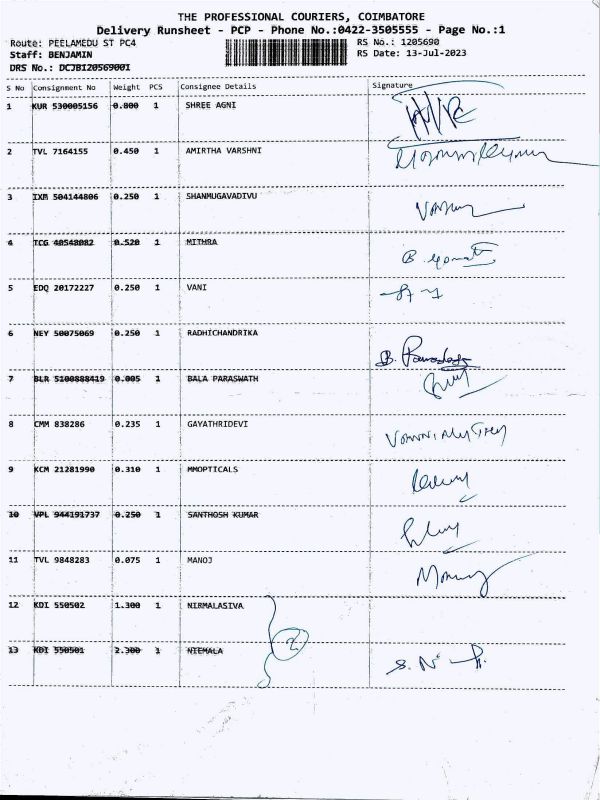 THE PROFESSIONAL COURIERS, COIMBATORE
Delivery Runsheet - PCP - Phone No.:0422-3505555 - Page No.:1
Route: PEELAMEDU ST PC4 RS No.: 1205690
Staff: BENJAMIN RS Date: 13-Jul-2023
DRS No.: DCJB120569001
S No Consignment No Weight PCS Consignee Details Signature
1 KUR 530005156 0.800 1 SHREE AGNI
2 TVL 7164155 0.450 1 AMIRTHA VARSHNI
3 IXM 504144806 0.250 1 SHANMUGAVADIVU
4 TCG 40548082 0.520 1 MITHRA
5 EDQ 20172227 0.250 1 VANI
6 NEY 50075069 0.250 1 RADHICHANDRIKA
7 BLR 5100888419 0.005 1 BALA PARASWATH
8 CMM 838286 0.235 1 GAYATHRIDEVI
9 KCM 21281990 0.310 1 MMOPTICALS
10 VPL 944191737 0.250 1 SANTHOSH KUMAR
11 TVL 9848283 0.075 1 MANOJ
12 KDI 550502 1.300 1 NIRMALASIVA
2
13 KDI 550501 2.300 1 NIEMALA